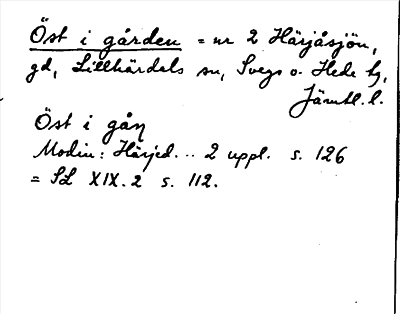 Öst i gården = nr 2 Härjåsjön,
gd, Lillhärdals sn, Svegs o. Hede tg,
Jämtl. l.
Öst i gåɲ
Modin: Härjed... 2 uppl. s. 126
= SL XIX.2 s. 112.